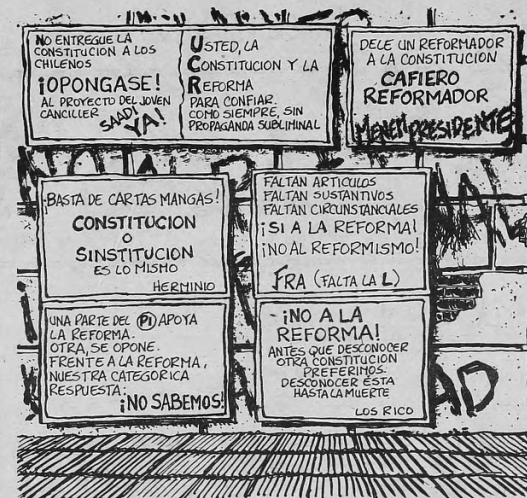 NO ENTREGUE LA
CONSTITUCION A LOS
CHILENOS
¡OPONGASE!
AL PROYECTO DEL JOVEN
CANCILLER
SAADI
YA!
USTED, LA
CONSTITUCION Y LA
REFORMA
PARA CONFIAR.
COMO SIEMPRE, SIN
PROPAGANDA SUBLIMINAL
DELE UN REFORMADOR
A LA CONSTITUCION
CAFIERO
REFORMADOR
MENEM PRESIDENTE
¡BASTA DE CARTAS MANGAS!
CONSTITUCION
O
SINSTITUCION
ES LO MISMO
HERMINIO
FALTAN ARTICULOS
FALTAN SUSTANTIVOS
FALTAN CIRCUNSTANCIALES
¡SI A LA REFORMA!
¡NO AL REFORMISMO!
FRA (FALTA LA L)
UNA PARTE DEL PI APOYA
LA REFORMA.
OTRA, SE OPONE.
FRENTE A LA REFORMA,
NUESTRA CATEGORICA
RESPUESTA:
¡NO SABEMOS!
¡NO A LA
REFORMA!
ANTES QUE DESCONOCER
OTRA CONSTITUCION
PREFERIMOS
DESCONOCER ÉSTA
HASTA LA MUERTE
LOS RICO